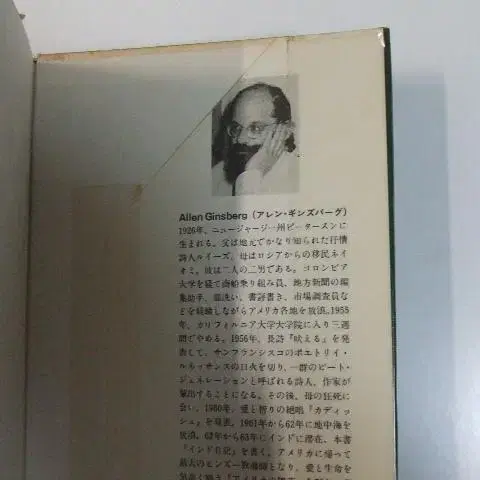 Allen Ginsberg（アレン・ギンズバーグ）
1926年、ニュージャージー州ピータースンに
生まれる。父は地元でかなり知られた抒情
詩人ルイーズ、母はロシアからの移民ネイ
オミ。彼は二人の二男である。コロンビア
大学を経て商船乗り組み員、地方新聞の編
集助手、皿洗い、書評書き、市場調査員な
どを経験しながらアメリカ各地を放浪。1955
年、カリフォルニア大学大学院に入り三週
間でやめる。1956年、長詩『吠える』を発
表して、サンフランシスコのポエトリイ・
ルネッサンスの口火を切り、一群のビート・
ジェネレーションと呼ばれる詩人、作家が
輩出することになる。その後、母の狂死に
会い、1960年、愛と祈りの絶唱『カディッ
シュ』を発表。1961年から62年に地中海を
放浪。62年から63年にインドに滞在、本書
『インド日記』を書く。アメリカに帰って
最大のヒンズー教導師となり、愛と生命を